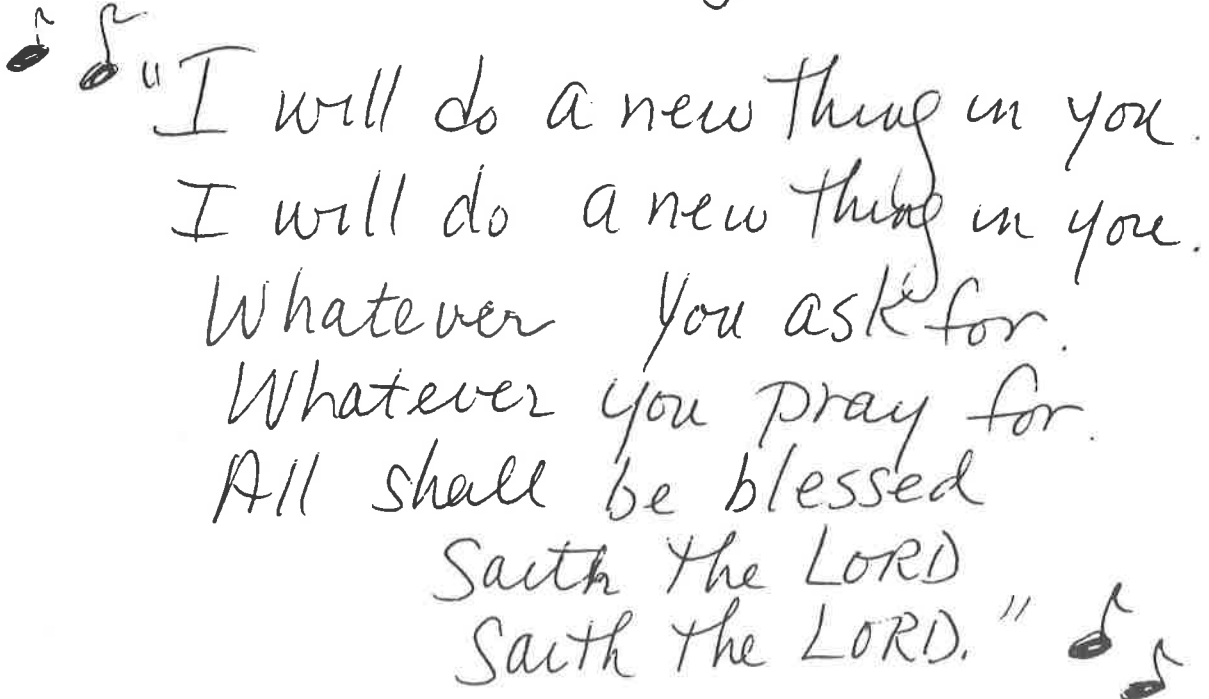 "I will do a new thing in you.
I will do a new thing in you.
Whatever you ask for.
Whatever you pray for.
All shall be blessed
Saith the LORD
Saith the LORD."